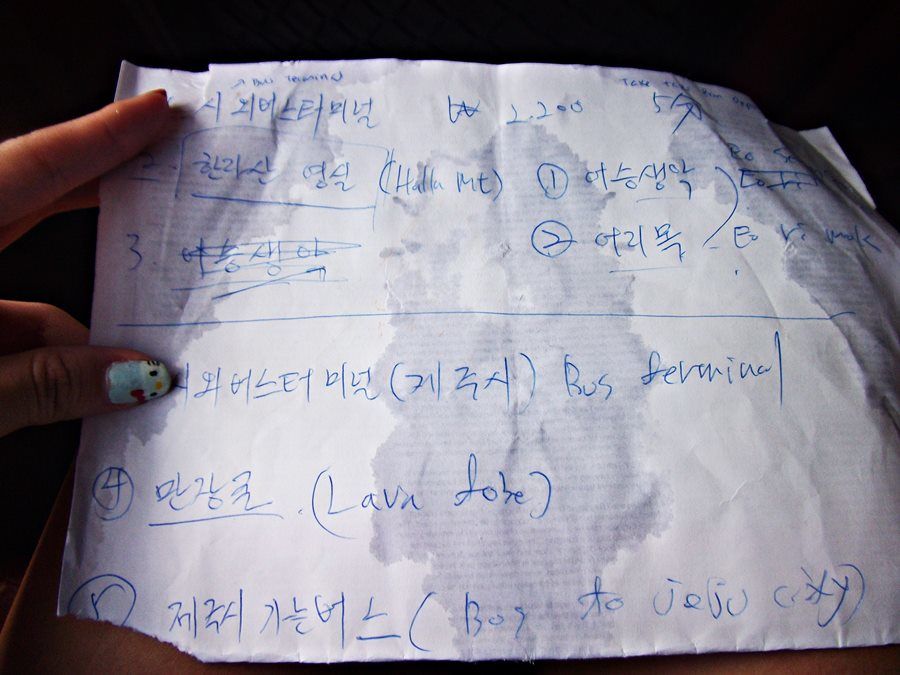 ↗ Bus Terminal
시외버스터미널 ₩ 2.200 5分
2. 한라산 영실 (Halla Mt) ① 어승생악
3. 어승생악 ② 어리목 Eo ri mok
시외버스터미널 (제주시) Bus terminal
④ 만장굴 . (Lava tobe)
제주시 가는버스 ( Bus to jeju city)